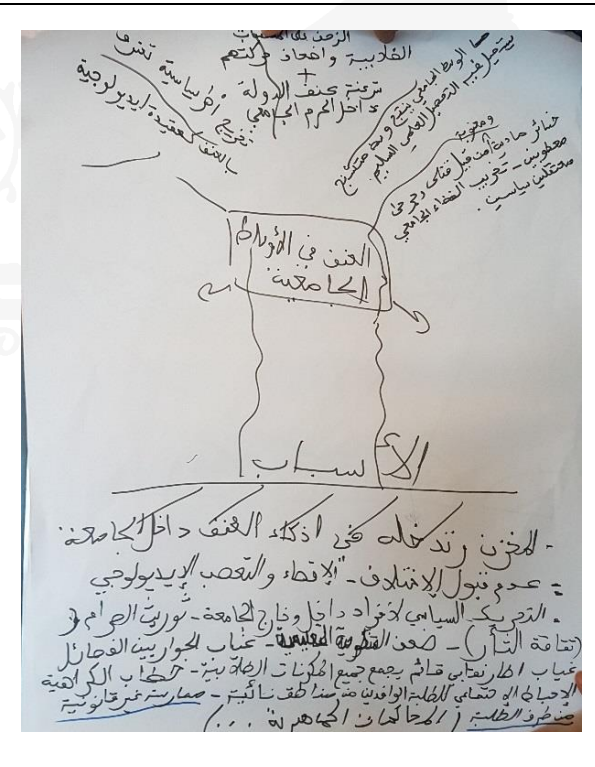 الزمن
الطلابية واضعاف حركتهم
+
شرعنة عنف الدولة
داخل الحرم الجامعي
تفريخ أطر سياسية تؤمن
بالعنف كعقيدة ايديولوجية
الوسط الجامعي ينتج وسط متشنج
يستحيل فيه التحصيل العلمي السليم
ومعنوية
خسائر مادية من قبل قتلى وجرحى
معطوبين - تخريب الفضاء الجامعي
معتقلين سياسيين.
العنف في الأوساط
الجامعية
الأسباب
- المخزن وتدخله في اذكاء العنف داخل الجامعة.
- عدم قبول الاختلاف - "الإقصاء والتعصب الإيديولوجي
- التحريك السياسي لأفراد داخل وخارج الجامعة - توريث الصراع
(ثقافة الثأر) - ضعف - غياب الحوار بين الفصائل
غياب اطار نقابي قائم يجمع جميع المكونات الطلابية - خطاب الكراهية
الإحباط الاجتماعي للطلبة الوافدين من مناطق نائية - ممارسة غير قانونية
من طرف الطلبة (المحاكمات الجماهرية ...)